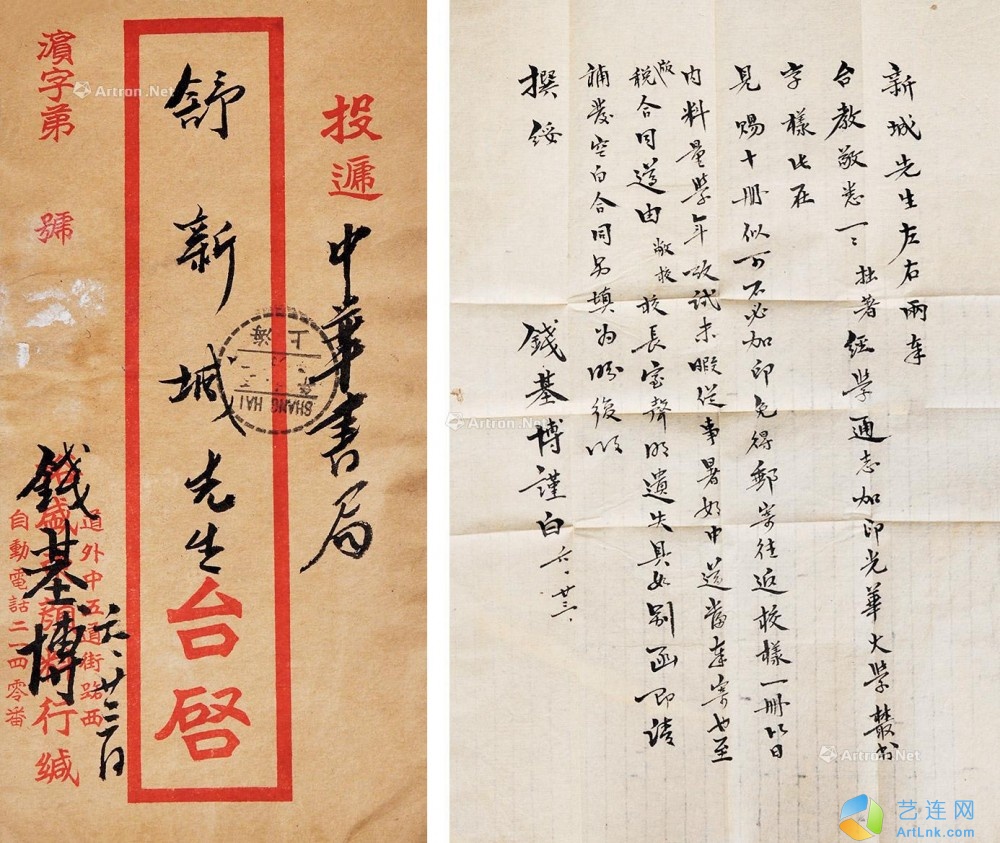 投遞
中華書局
舒新城先生台啓
SHANG HAI
上海
濱字第 號
錢基博
六、廿三日
道外中五道街路西
盛 顏料行緘
自動電話二二四零番
新城先生左右兩奉
台教敬悉一一拙著經學通志加印光華大學叢書
字樣此在
見賜十冊似可不必加印免得郵寄往返校樣一冊以日
內料量學年攷試未暇從事暑假中送當奉寄也至
版稅合同送由敝校校長室聲明遺失具如別函即請
補發空白合同另填為盼後頌
撰綏
錢基博謹白 六、廿三、
Artron.Net
Artron.Net
Artron.Net
Artron.Net
艺连网
ArtLnk.com